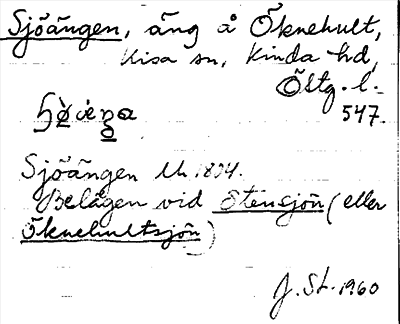 Sjöängen, äng å Öknehult,
Kisa sn, Kinda hd,
Östg. l.
547.
Sjöängen Uk 1804.
Belägen vid Stensjön (eller
Öknehultsjön)
J. St. 1960